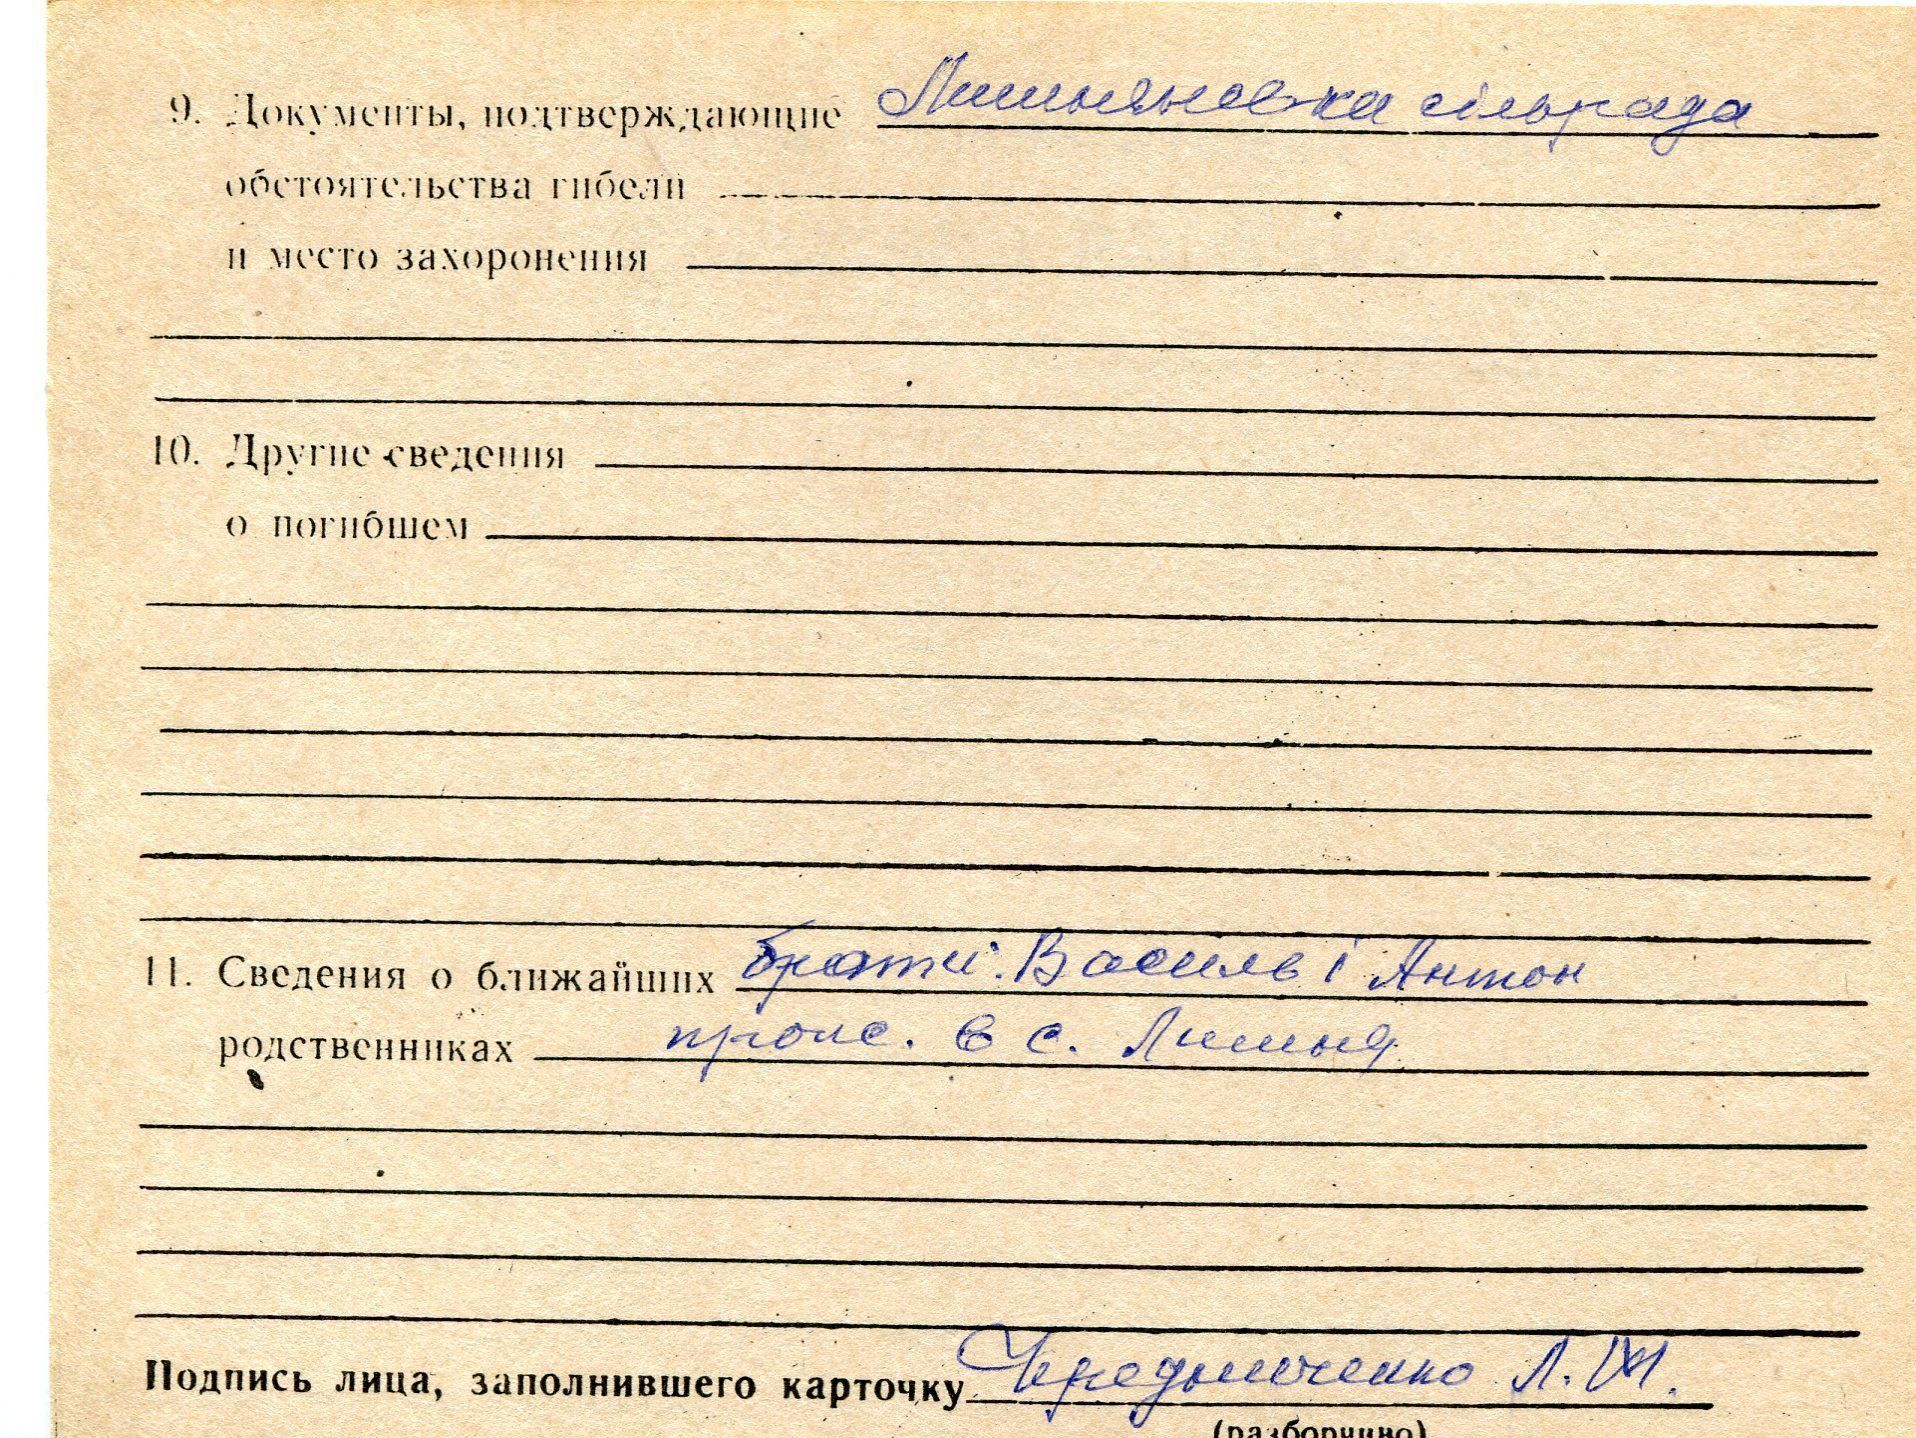 9. Документы, подтверждающие Лишнянська сільрада
обстоятельства гибели
и место захоронения
10. Другие сведения
о погибшем
11. Сведения о ближайших брати: Василь і Антон
родственниках прож. в с. Лишня
Подпись лица, заполнившего карточку Чередниченко Л. М.
(разборчиво)